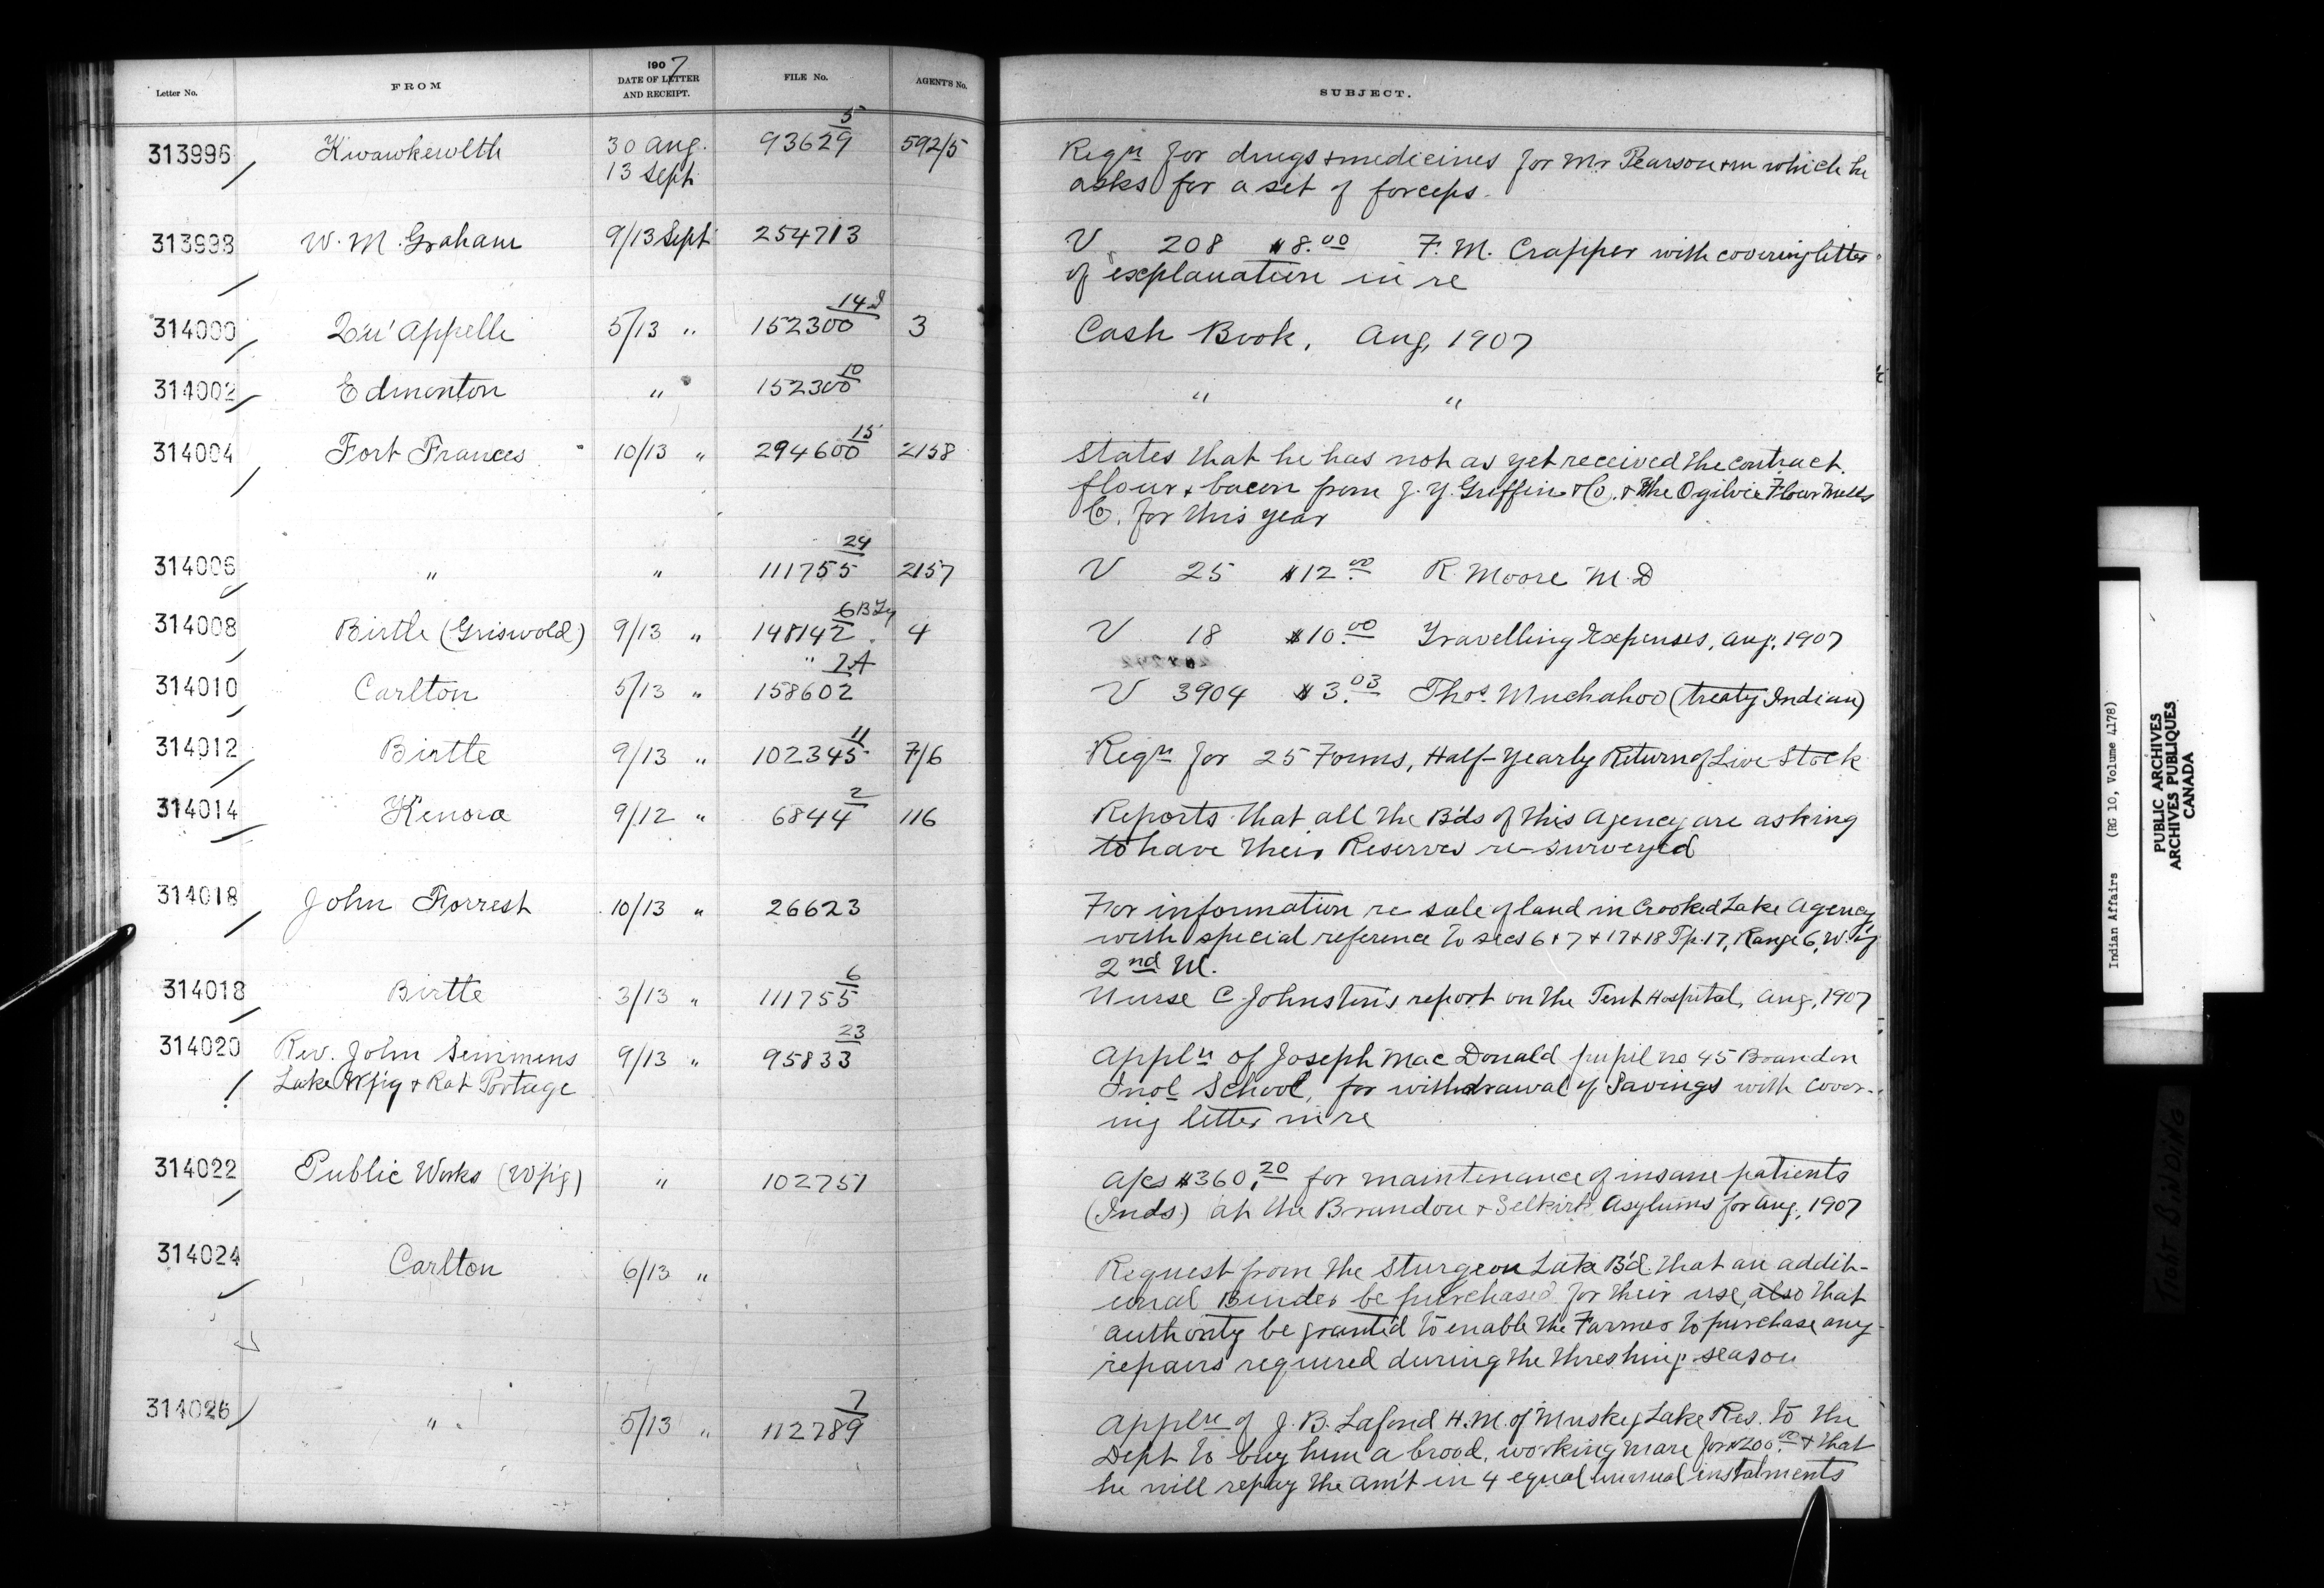 1907
Letter No. FROM DATE OF LETTER AND RECEIPT. FILE No. AGENT'S No. SUBJECT.
313996 Kwawkewlth 30 Aug. 93629 5 592/5 Reqn for drugs + medicines for Mr Pearson + in which he
13 Sept asks for a set of forceps.
313998 W. M. Graham 9/13 Sept 254713 V 208 $8.00 F. M. Crapper with covering letter
of explanation in re
314000 Qu'Appelle 5/13 " 152300 14 3 Cash Book, Aug, 1907
314002 Edmonton " 152300 10 " "
314004 Fort Frances 10/13 " 294600 15 2158 States that he has not as yet received the contract
flour + bacon from J. Y. Griffin + Co. + The Ogilvie Flour Mills
Co. for this year
314006 " " 111755 24 2157 V 25 $12.00 R. Moore M.D
314008 Birtle (Griswold) 9/13 " 148142 6 4 V 18 $10.00 Travelling Expenses, Aug, 1907
314010 Carlton 5/13 " 158602 V 3904 $3.03 Thos. Muchahoo (treaty Indian)
314012 Birtle 9/13 " 102345 11 7/6 Reqn for 25 Forms, Half-Yearly Return of Live Stock
314014 Kenora 9/12 " 6844 2 116 Reports that all the B'ds of this Agency are asking
to have their Reserves re-surveyed
314018 John Forrest 10/13 " 26623 For information re sale of land in Crooked Lake Agency
with special reference to secs 6 + 7 + 17 + 18 Tp. 17, Range 6, W. of
2nd M.
314018 Birtle 3/13 " 111755 6 Nurse C. Johnston's report on the Tent Hospital, Aug, 1907
314020 Rev. John Semmens 9/13 " 95833 23 Appln of Joseph MacDonald pupil no 45 Brandon
Lake Wpg + Rat Portage Indl School, for withdrawal of Savings with cover-
ing letter in re
314022 Public Works (Wpg) " 102751 A/cs $360.20 for maintenance of insane patients
(Inds) at the Brandon + Selkirk Asylums for Aug, 1907
314024 Carlton 6/13 " Request from the Sturgeon Lake B'd. that an addit-
ional Binder be purchased for their use, also that
authority be granted to enable the Farmer to purchase any
repairs required during the threshing season
314026 " 5/13 " 112789 7 Appln of J. B. Lafond H.M. of Muskeg Lake Res. to the
Dept to buy him a brood, working mare for $200.00 + that
he will repay the am't in 4 equal annual instalments
Indian Affairs (RG 10, Volume 4178)
PUBLIC ARCHIVES
ARCHIVES PUBLIQUES
CANADA
TIGHT BINDING